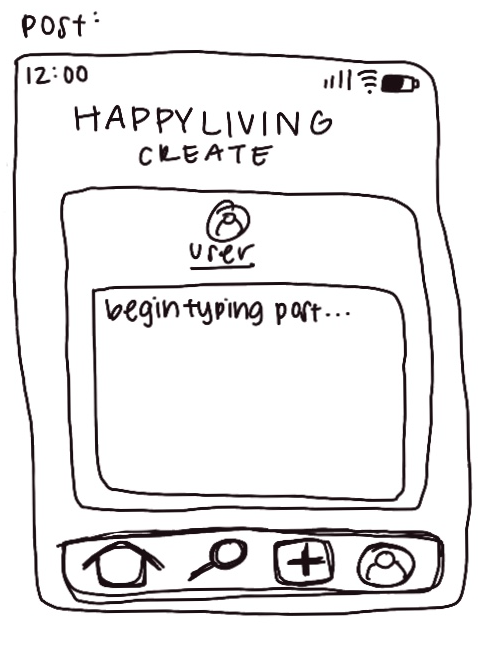 post:
12:00
HAPPYLIVING
CREATE
user
begin typing post...